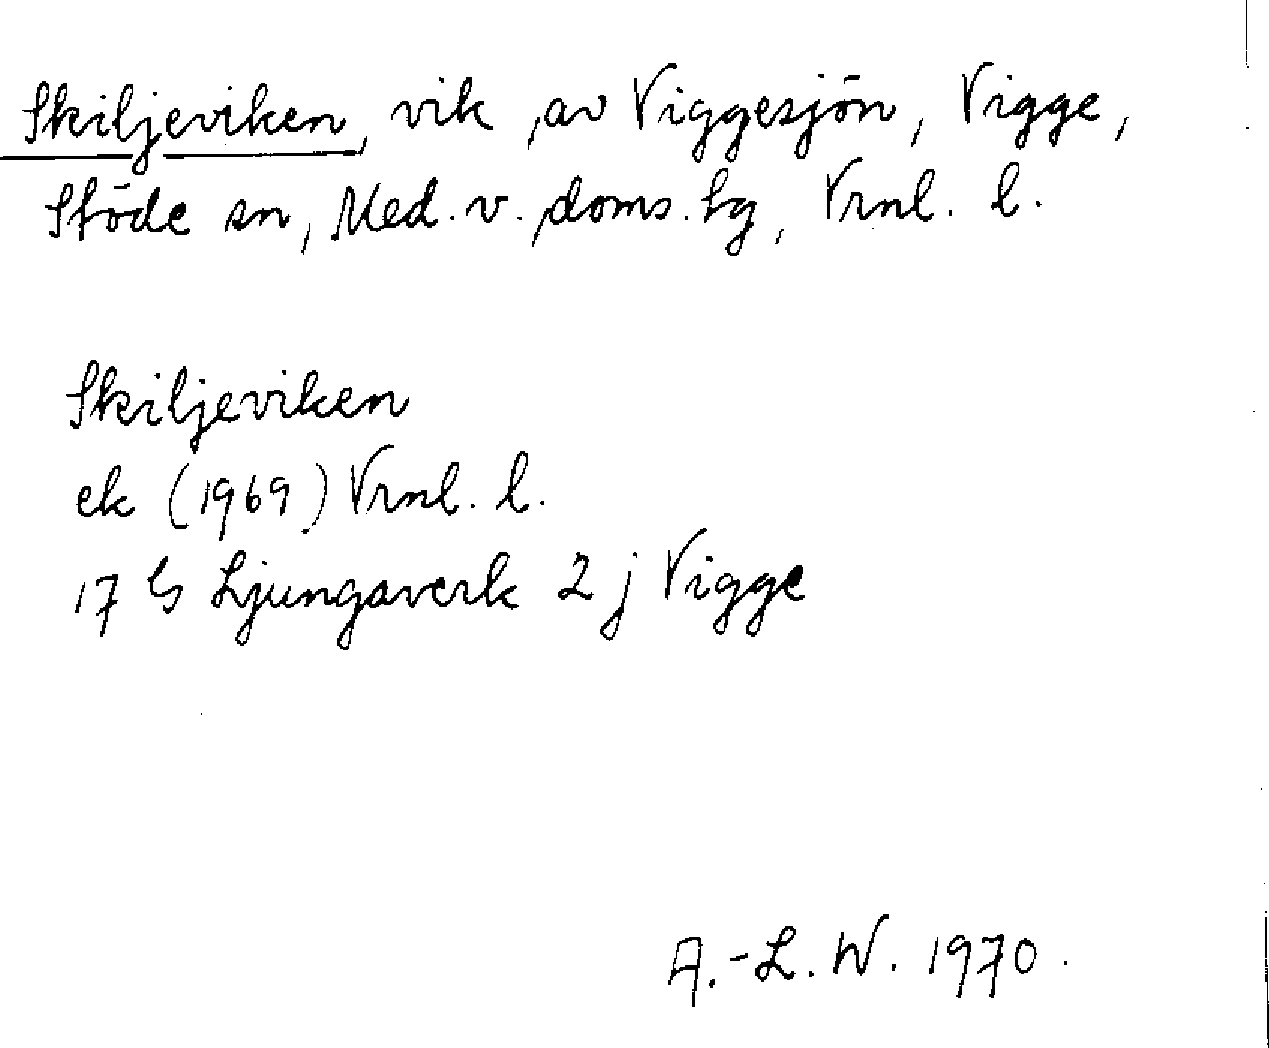 Skiljeviken, vik av Viggesjön, Vigge,
Stöde sn, Med. v. doms. hg, Vrnl. l.
Skiljeviken
ek (1969) Vrnl. l.
17 G Ljungaverk 2 j Vigge
A.-L. W. 1970.